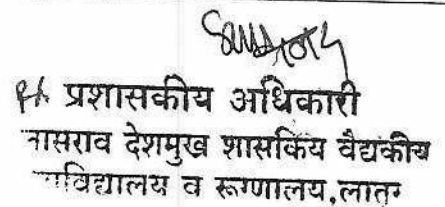 प्रशासकीय अधिकारी
नासराव देशमुख शासकिय वैद्यकीय
विद्यालय व रूग्णालय,लातूर